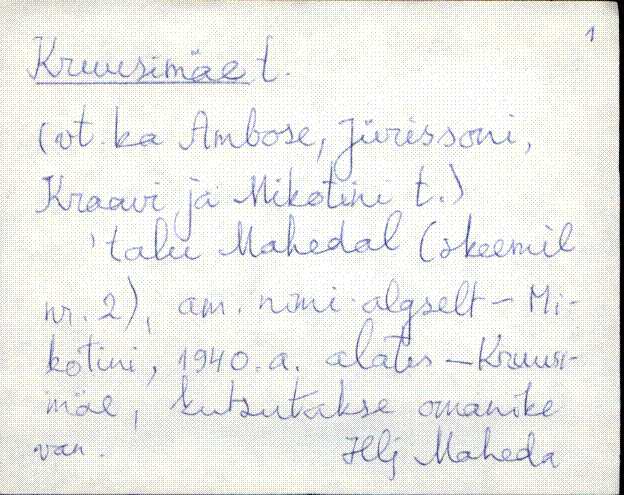 1
Kruusimäe t.
(vt. ka Ambose, Jürissoni,
Kraavi ja Mikotini t.)
'talu Mahedal (skeemil
nr. 2), am. nimi algselt – Mi-
kotini, 1940. a. alates – Kruusi-
mäe, kutsutakse omanike
van.
Hlj Maheda